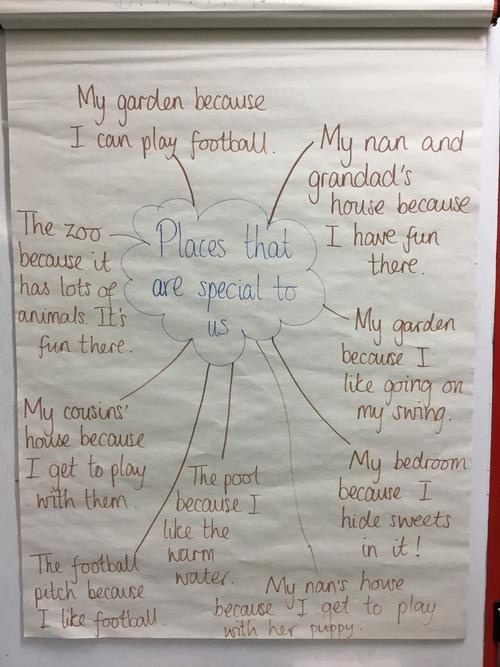 My garden because
I can play football.
My nan and
grandad's
house because
I have fun
there.
The zoo
because it
has lots of
animals. It's
fun there.
Places that
are special to
us
My garden
because I
like going on
my swing.
My cousins'
house because
I get to play
with them.
The pool
because I
like the
warm
water.
My bedroom
because I
hide sweets
in it!
The football
pitch because
I like football.
My nan's house
because I get to play
with her puppy.